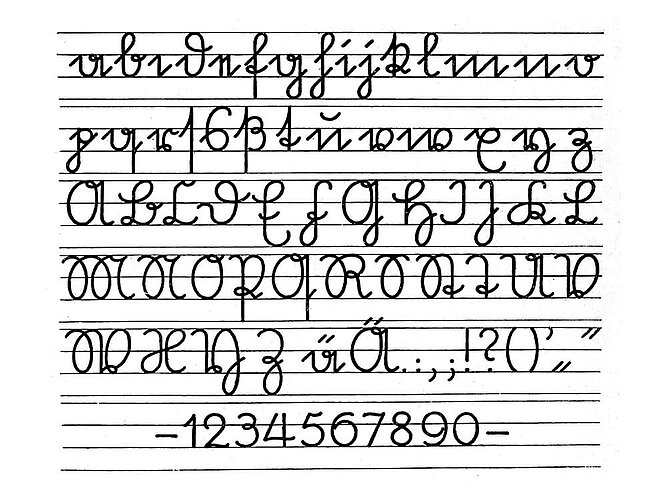 a b c d e f g h i j k l m n o
p q r ſ s ß t u v w x y z
A B C D E F G H I J K L
M N O P Q R S St T U V
W X Y Z ä Ä . : , ; ! ? ( ) ’ „ “
– 1 2 3 4 5 6 7 8 9 0 –